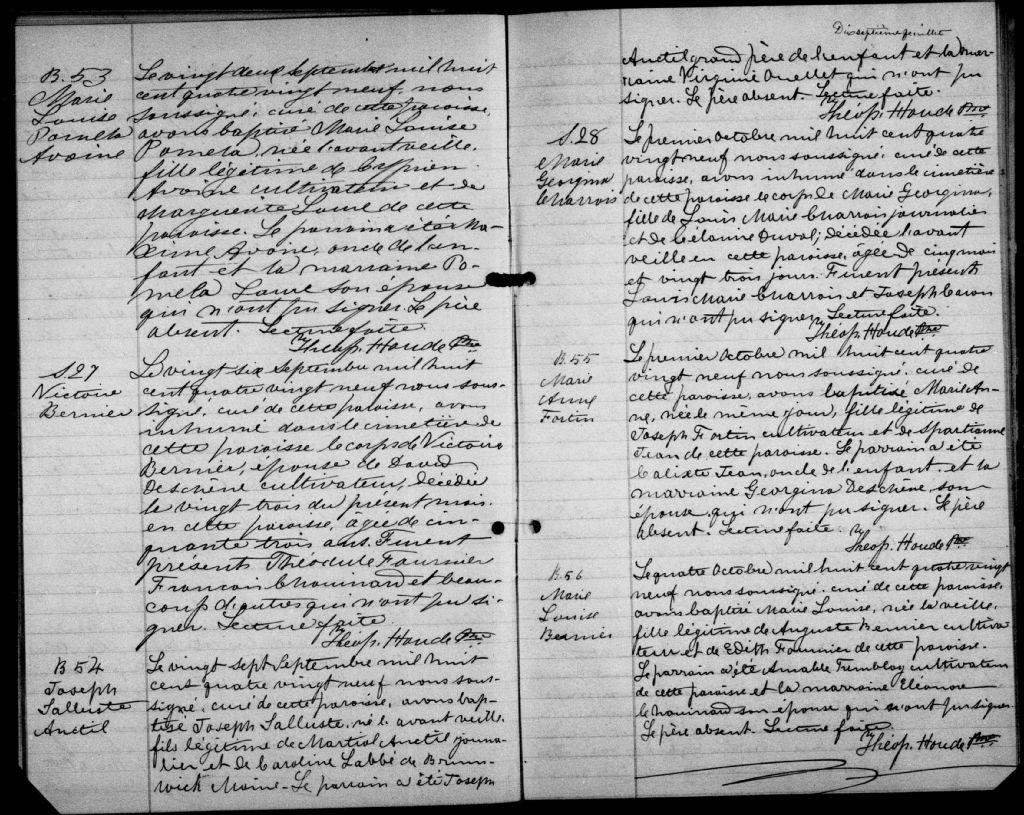 B. 53
Marie
Louise
Pomela
Avoine
Le vingt deux septembre mil huit
cent quatre vingt neuf, nous
soussigné, curé de cette paroisse,
avons baptisé Marie Louise
Pomela, née l'avant veille,
fille légitime de Cyprien
Avoine cultivateur et de
Marguerite Lamé de cette
paroisse. Le parrain a été Ma-
xime Avoine, oncle de l'en-
fant et la marraine Po-
mela Lamé son épouse
qui n'ont pu signer. Le père
absent. Lecture faite.
Théop. Houde Ptre
S. 27
Victoire
Bernier
Le vingt six Septembre mil huit
cent quatre vingt neuf nous sous-
signé, curé de cette paroisse, avons
inhumé dans le cimetière de
cette paroisse le corps de Victoire
Bernier, épouse de David
Deschène cultivateur, décédée
le vingt trois du présent mois
en cette paroisse, âgée de cin-
quante trois ans. Furent
présents Théodule Fournier
Francois Chouinard et beau-
coup d'autres qui n'ont pu si-
gner. Lecture faite.
Théop. Houde Ptre
B 54
Joseph
Salluste
Anctil
Le vingt sept Septembre mil huit
cent quatre vingt neuf nous sous-
signé, curé de cette paroisse, avons bap-
tisé Joseph Salluste, né l'avant veille,
fils légitime de Martial Anctil journa-
lier et de Caroline Labbé de Bruns-
wick Maine. Le parrain a été Joseph
Dixseptième feuillet
Anctil grand père de l'enfant et la mar-
raine Virginie Ouellet qui n'ont pu
signer. Le père absent. Lecture faite.
Théop. Houde Ptre
S. 28
Marie
Georgina
Charrois
Le premier Octobre mil huit cent quatre
vingt neuf nous soussigné, curé de cette
paroisse, avons inhumé dans le cimetière
de cette paroisse le corps de Marie Georgina,
fille de Louis Marie Charrois journalier
et de Célanire Duval, décédée l'avant
veille en cette paroisse, âgée de cinq mois
et vingt trois jours. Furent présents
Louis Marie Charrois et Joseph Caron
qui n'ont pu signer. Lecture faite.
Théop. Houde Ptre
B. 55
Marie
Anne
Fortin
Le premier Octobre mil huit cent quatre
vingt neuf nous soussigné, curé de
cette paroisse, avons baptisée Marie An-
ne, née le même jour, fille légitime de
Joseph Fortin cultivateur et de
Jean de cette paroisse. Le parrain a été
Calixte Jean, oncle de l'enfant et la
marraine Georgina Deschène, son
épouse qui n'ont pu signer. Le père
absent. Lecture faite.
Théop. Houde Ptre
B. 56
Marie
Louise
Bernier
Le quatre Octobre mil huit cent quatre vingt
neuf nous soussigné, curé de cette paroisse,
avons baptisé Marie Louise, née la veille,
fille légitime de Auguste Bernier cultiva-
teur et de Edith Fournier de cette paroisse.
Le parrain a été Amable Tremblay cultivateur
de cette paroisse et la marraine Eléonore
Chouinard son épouse qui n'ont pu signer.
Le père absent. Lecture faite.
Théop. Houde Ptre